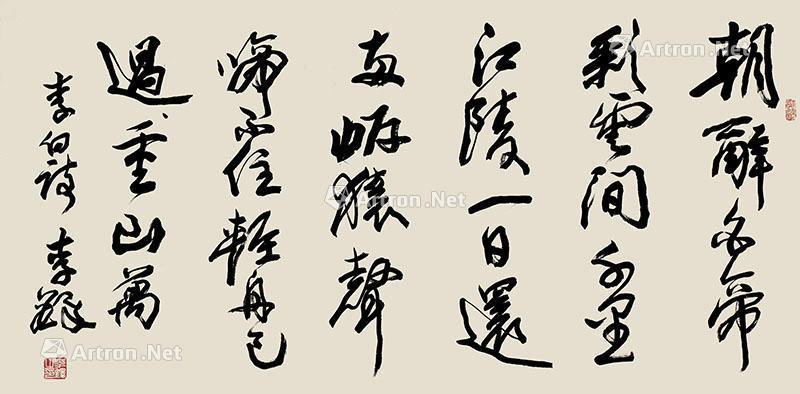 朝辭白帝
彩雲間千里
江陵一日還
兩岸猿聲
啼不住輕舟已
過重山萬
李白詩 李鐸
Artron.Net
Artron.Net
Artron.Net
Artron.Net
Artron.Net
Artron.Net